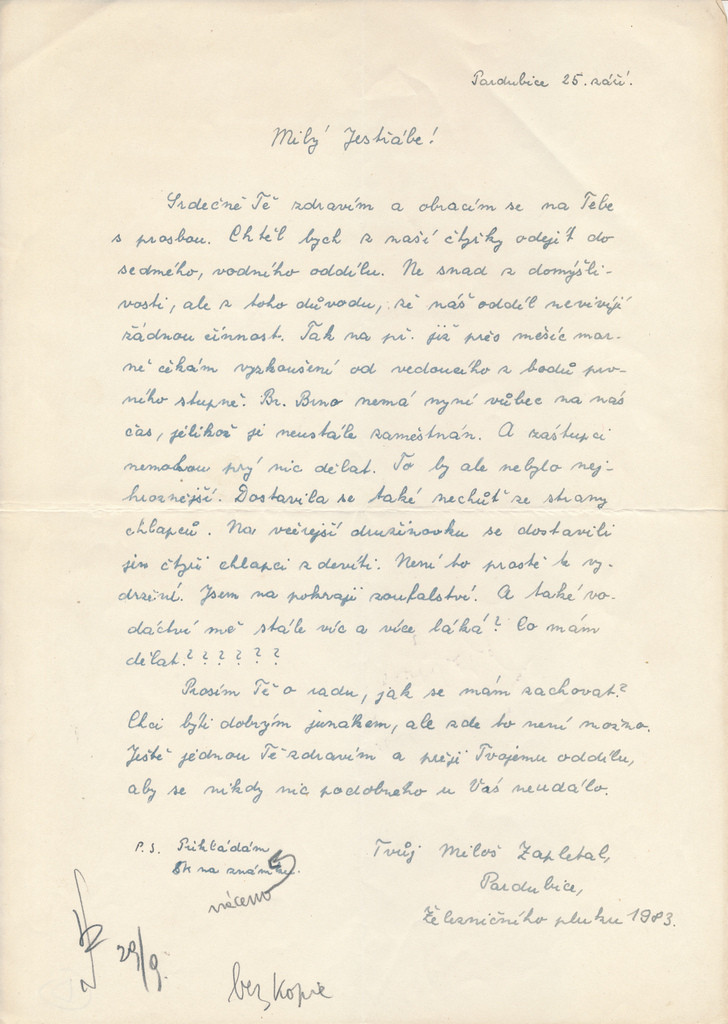 Pardubice 25. září.
Milý Jestřábe!
Srdečně Tě zdravím a obracím se na Tebe
s prosbou. Chtěl bych z naší čtyřky odejít do
sedmého, vodního oddílu. Ne snad z domýšli-
vosti, ale z toho důvodu, že náš oddíl nevivíjí
žádnou činnost. Tak na př. již přes měsíc mar-
ně čekám vyzkoušení od vedoucího z bodů prv-
ního stupně. Br. Brno nemá nyní vůbec na nás
čas, jelikož je neustále zaměstnán. A zástupci
nemohou prý nic dělat. To by ale nebylo nej-
hroznější. Dostavila se také nechuť ze strany
chlapců. Na včerejší družinovku se dostavili
jen čtyři chlapci z devíti. Není to prostě k vy-
držení. Jsem na pokraji zoufalství. A také vo-
dáctví mě stále víc a více láká? Co mám
dělat??????
Prosím Tě o radu, jak se mám zachovat?
Chci býti dobrým junákem, ale zde to není možno.
Ještě jednou Tě zdravím a přeji Tvojemu oddílu,
aby se nikdy nic podobného u Vás neudálo.
P.S. Přikládám
5K na známku.
vráceno
Tvůj Miloš Zapletal,
Pardubice,
Železničního pluku 1983.
29/9.
bez kopie